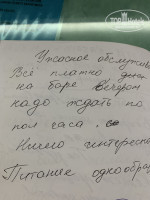 Ужасное обслужив
Всё платно днем
на баре вечером
надо ждать по
пол часа.
Ничего интересно
Питание однообра